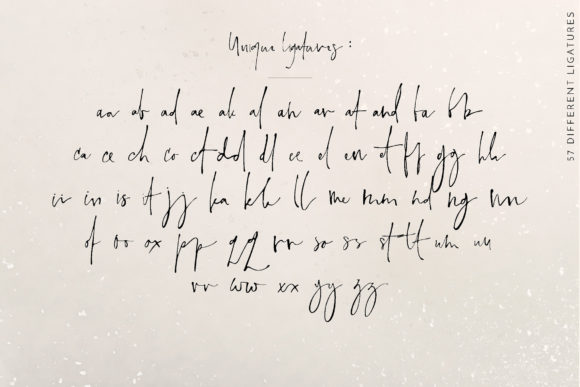 Unique ligatures:
aa ab ad ae ak al an ar at and ba bb
ca ce ch co ct dd dl ee el en et ff gg hh
ii in is it jj ka kk ll me mm nd ng nn
of oo ox pp qq rr so ss st tt um uu
vv ww xx yy zz
57 DIFFERENT LIGATURES